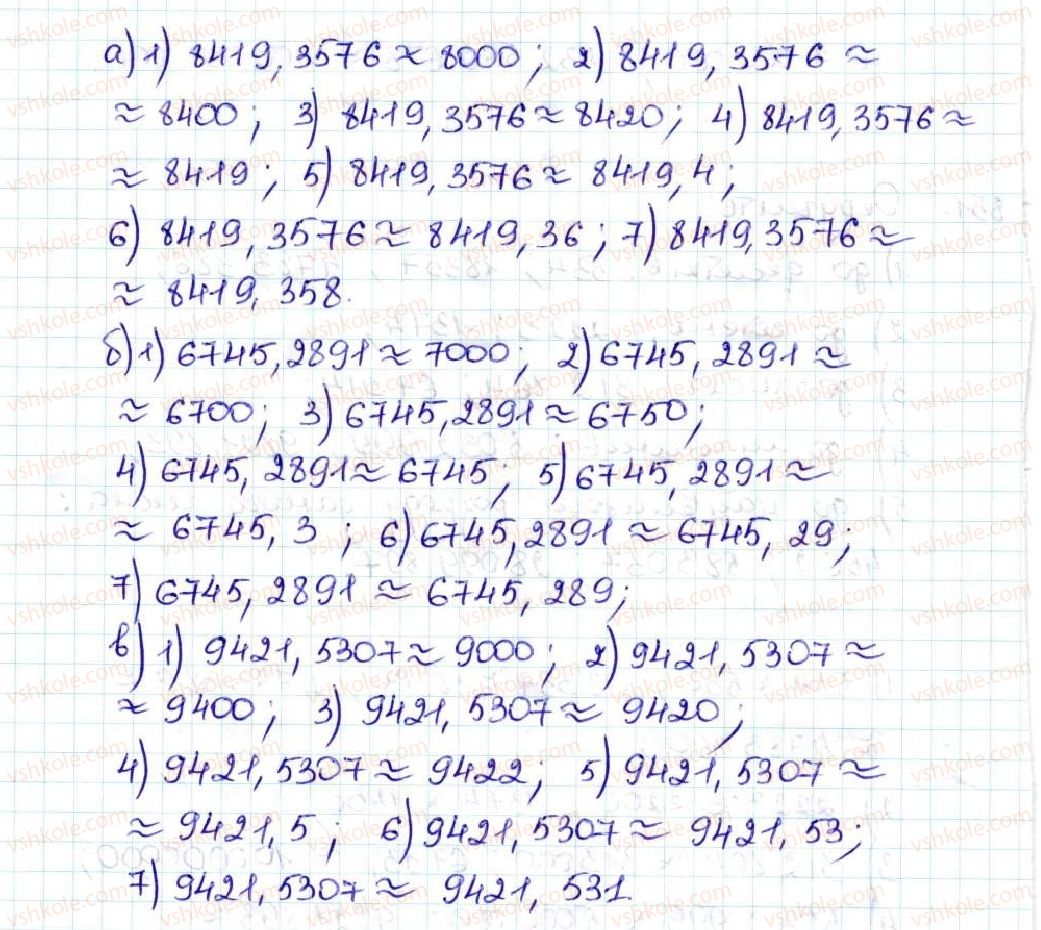 а) 1) 8419,3576 ≈ 8000; 2) 8419,3576 ≈
≈ 8400; 3) 8419,3576 ≈ 8420; 4) 8419,3576 ≈
≈ 8419; 5) 8419,3576 ≈ 8419,4;
6) 8419,3576 ≈ 8419,36; 7) 8419,3576 ≈
≈ 8419,358.
б) 1) 6745,2891 ≈ 7000; 2) 6745,2891 ≈
≈ 6700; 3) 6745,2891 ≈ 6750;
4) 6745,2891 ≈ 6745; 5) 6745,2891 ≈
≈ 6745,3; 6) 6745,2891 ≈ 6745,29;
7) 6745,2891 ≈ 6745,289;
в) 1) 9421,5307 ≈ 9000; 2) 9421,5307 ≈
≈ 9400; 3) 9421,5307 ≈ 9420;
4) 9421,5307 ≈ 9422; 5) 9421,5307 ≈
≈ 9421,5; 6) 9421,5307 ≈ 9421,53;
7) 9421,5307 ≈ 9421,531.
vshkole.com